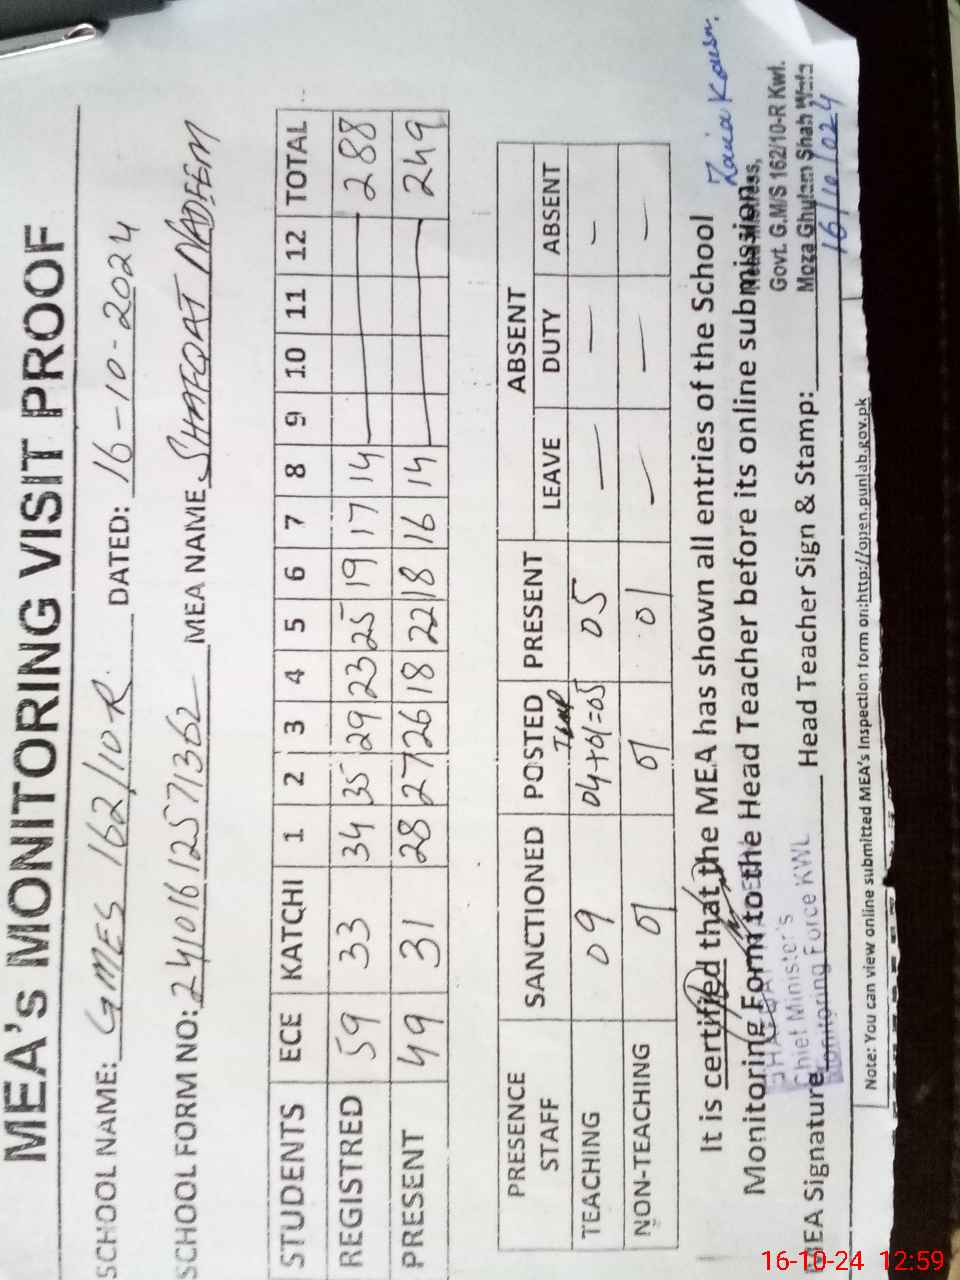 MEA's MONITORING VISIT PROOF
SCHOOL NAME: GMES 162/10R DATED: 16-10-2024
SCHOOL FORM NO: MEA NAME SHAFQAT NADEEM
STUDENTS ECE KATCHI 1 2 3 4 5 6 7 8 9 10 11 12 TOTAL
REGISTRED 59 33 34 35 29 23 25 19 17 14 288
PRESENT 49 31 28 27 26 18 22 18 16 14 249
PRESENCE STAFF SANCTIONED POSTED PRESENT ABSENT
LEAVE DUTY ABSENT
TEACHING 09 04+01=05 05 — — —
NON-TEACHING 01 01 01 — — —
It is certified that the MEA has shown all entries of the School
Monitoring Form to the Head Teacher before its online submission.
MEA Signature Head Teacher Sign & Stamp:
Chief Minister's
Monitoring Force KWL
Govt. G.M/S 162/10-R Kwl.
Moza Ghulam Shah
16/10/024
Note: You can view online submitted MEA's Inspection form on:http://open.punjab.gov.pk
16-10-24 12:59